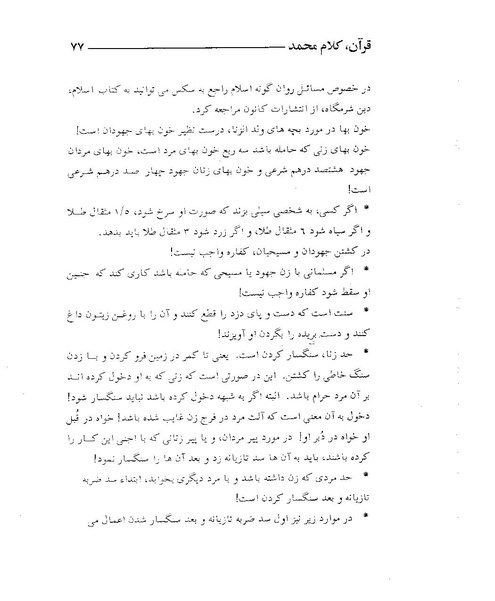 قرآن، کلام محمد ۷۷
در خصوص مسائل روان گونه اسلام راجع به سکس می توانید به کتاب اسلام،
دین شرمگاه، از انتشارات کانون مراجعه کرد.
خون بها در مورد بچه های ولد الزنا، درست نظیر خون بهای جهودان است!
خون بهای زنی که حامله باشد سه ربع خون بهای مرد است، خون بهای مردان
جهود هشتصد درهم شرعی و خون بهای زنان جهود چهار صد درهم شرعی
است!
* اگر کسی، به شخصی سیلی بزند که صورت او سرخ شود، ۱/۵ مثقال طلا
و اگر سیاه شود ۶ مثقال طلا، و اگر زرد شود ۳ مثقال طلا باید بدهد.
در کشتن جهودان و مسیحیان، کفاره واجب نیست!
* اگر مسلمانی با زن جهود یا مسیحی که حامله باشد کاری کند که جنین
او سقط شود کفاره واجب نیست!
* سنت است که دست و پای دزد را قطع کنند و آن را با روغن زیتون داغ
کنند و دست بریده را بگردن او آویزند!
* حد زنا، سنگسار کردن است. یعنی تا کمر در زمین فرو کردن و با زدن
سنگ خاطی را کشتن. این در صورتی است که زنی که به او دخول کرده اند
بر آن مرد حرام باشد. البته اگر به شبهه دخول کرده باشد نباید سنگسار شود!
دخول به آن معنی است که آلت مرد در فرج زن غایب شده باشد! خواه در قُبل
او خواه در دُبر او! در مورد پیر مردان، و یا پیر زنانی که با اجنبی این کار را
کرده باشند، باید به آن ها سد تازیانه زد و بعد آن ها را سنگسار نمود!
* حد مردی که زن داشته باشد و با مرد دیگری بخوابد، ابتداء سد ضربه
تازیانه و بعد سنگسار کردن است!
* در موارد زیر نیز اول سد ضربه تازیانه و بعد سنگسار شدن اعمال می